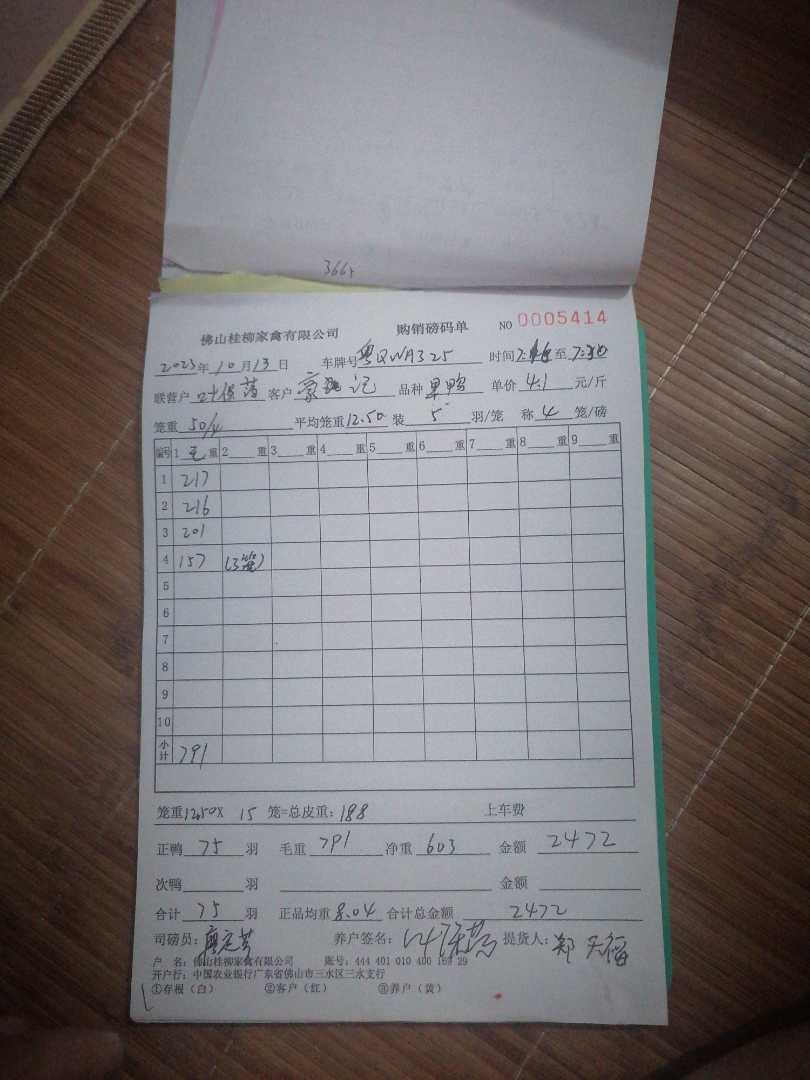 366
佛山桂柳家禽有限公司 购销磅码单 NO 0005414
2023年10月13日 车牌号粤QWA325 时间 至7:30
联营户 客户 记 品种 单价4.1元/斤
笼重50/4 平均笼重12.50 装5羽/笼 称4笼/磅
编号 1毛重 2 重 3 重 4 重 5 重 6 重 7 重 8 重 9 重
1 217
2 216
3 201
4 157 (3笼)
5
6
7
8
9
10
小计 791
笼重12.50X 15 笼=总皮重:188 上车费
正鸭75羽 毛重791 净重603 金额2472
次鸭 羽 金额
合计75羽 正品均重8.04 合计总金额2472
司磅员: 养户签名: 提货人:郑天福
户 名:佛山桂柳家禽有限公司 账号:444 401 010 400 169 29
开户行:中国农业银行广东省佛山市三水区三水支行
①存根(白) ②客户(红) ③养户(黄)